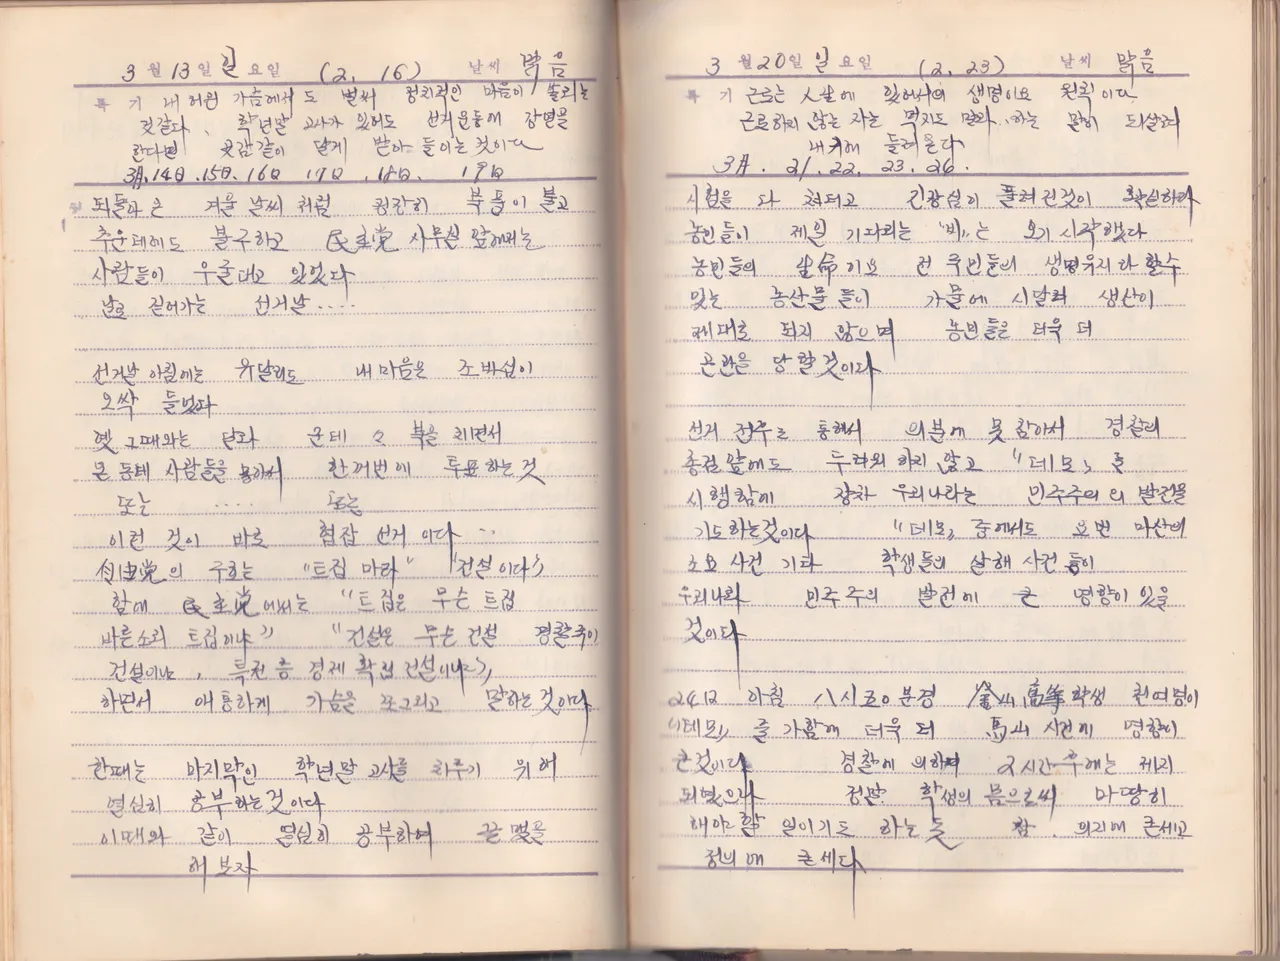 3월 13일 일요일 (2. 16) 날씨 맑음
특기 내 어린 가슴에서도 벌써 정치적인 마음이 쏠리는
것같다. 학년말 고사가 있어도 선거운동에 강연을
한다면 곶감같이 달게 받아 들이는 것이다
3月. 14日. 15日. 16日 17日. 18日. 19日
되돌아온 겨울 날씨 처럼 굉장히 북풍이 불고
추운데에도 불구하고 民主党 사무실 앞에는
사람들이 우굴대고 있었다
날로 짙어가는 선거날 ....
선거날 아침에는 유달리도 내 마음은 조바심이
오싹 들었다
옛 그때와는 달라 군데 군데 북을 치면서
온 동네 사람들을 한꺼번에 투표하는 것
또는 ..... 또는
이런 것이 바로 협잡 선거 이다 ..
自由党의 구호는 "트집 마라" "건설이다"
함에 民主党에서는 "트집은 무슨 트집
바른소리 트집이냐" "건설은 무슨 건설 경찰국이
건설이냐, 특권층 경제 확립 건설이냐"
하면서 애통하게 가슴을 쪼그리고 말하는 것이다
한때는 마지막인 학년말 고사를 치루기 위해
열심히 공부하는 것이다
이때와 같이 열심히 공부하여 끝맺을
해 보자
3월 20일 일요일 (2. 23) 날씨 맑음
특기 근로는 人生에 있어서의 생명이요 원칙이다
근로하지 않는 자는 먹지도 말라..하는 말이 되살려
내 귀에 들려온다
3月. 21. 22. 23. 26.
시험을 다 쳐버리고 긴장심이 풀려진것이 확실하다
농민들이 제일 기다리는 "비"는 오기 시작했다
농민들의 生命이요 전 국민들의 생명유지라 할수
있는 농산물들이 가뭄에 시달려 생산이
제대로 되지 않으며 농민들은 더욱 더
곤란을 당할것이다
선거 전후로 통해서 의분에 못 참아서 경찰의
총칼앞에도 두려워 하지 않고 "데모"를
시행함에 장차 우리나라는 민주주의의 발전을
기도하는것이다 "데모" 중에서도 요번 마산의
소요 사건 기타 학생들의 살해 사건 등이
우리나라 민주주의 발전에 큰 영향이 있을
것이다
24日 아침 八시 분경 釜山高等학생 천여명이
"데모"를 가함에 더욱 더 馬山 사건에 영향이
큰것이다 경찰에 의하여 2시간 후에는 제지
되였으나 정말 학생의 몸으로써 마땅히
해야 할 일이기도 하는 듯 참. 의지에 굳세고
정의에 굳세다